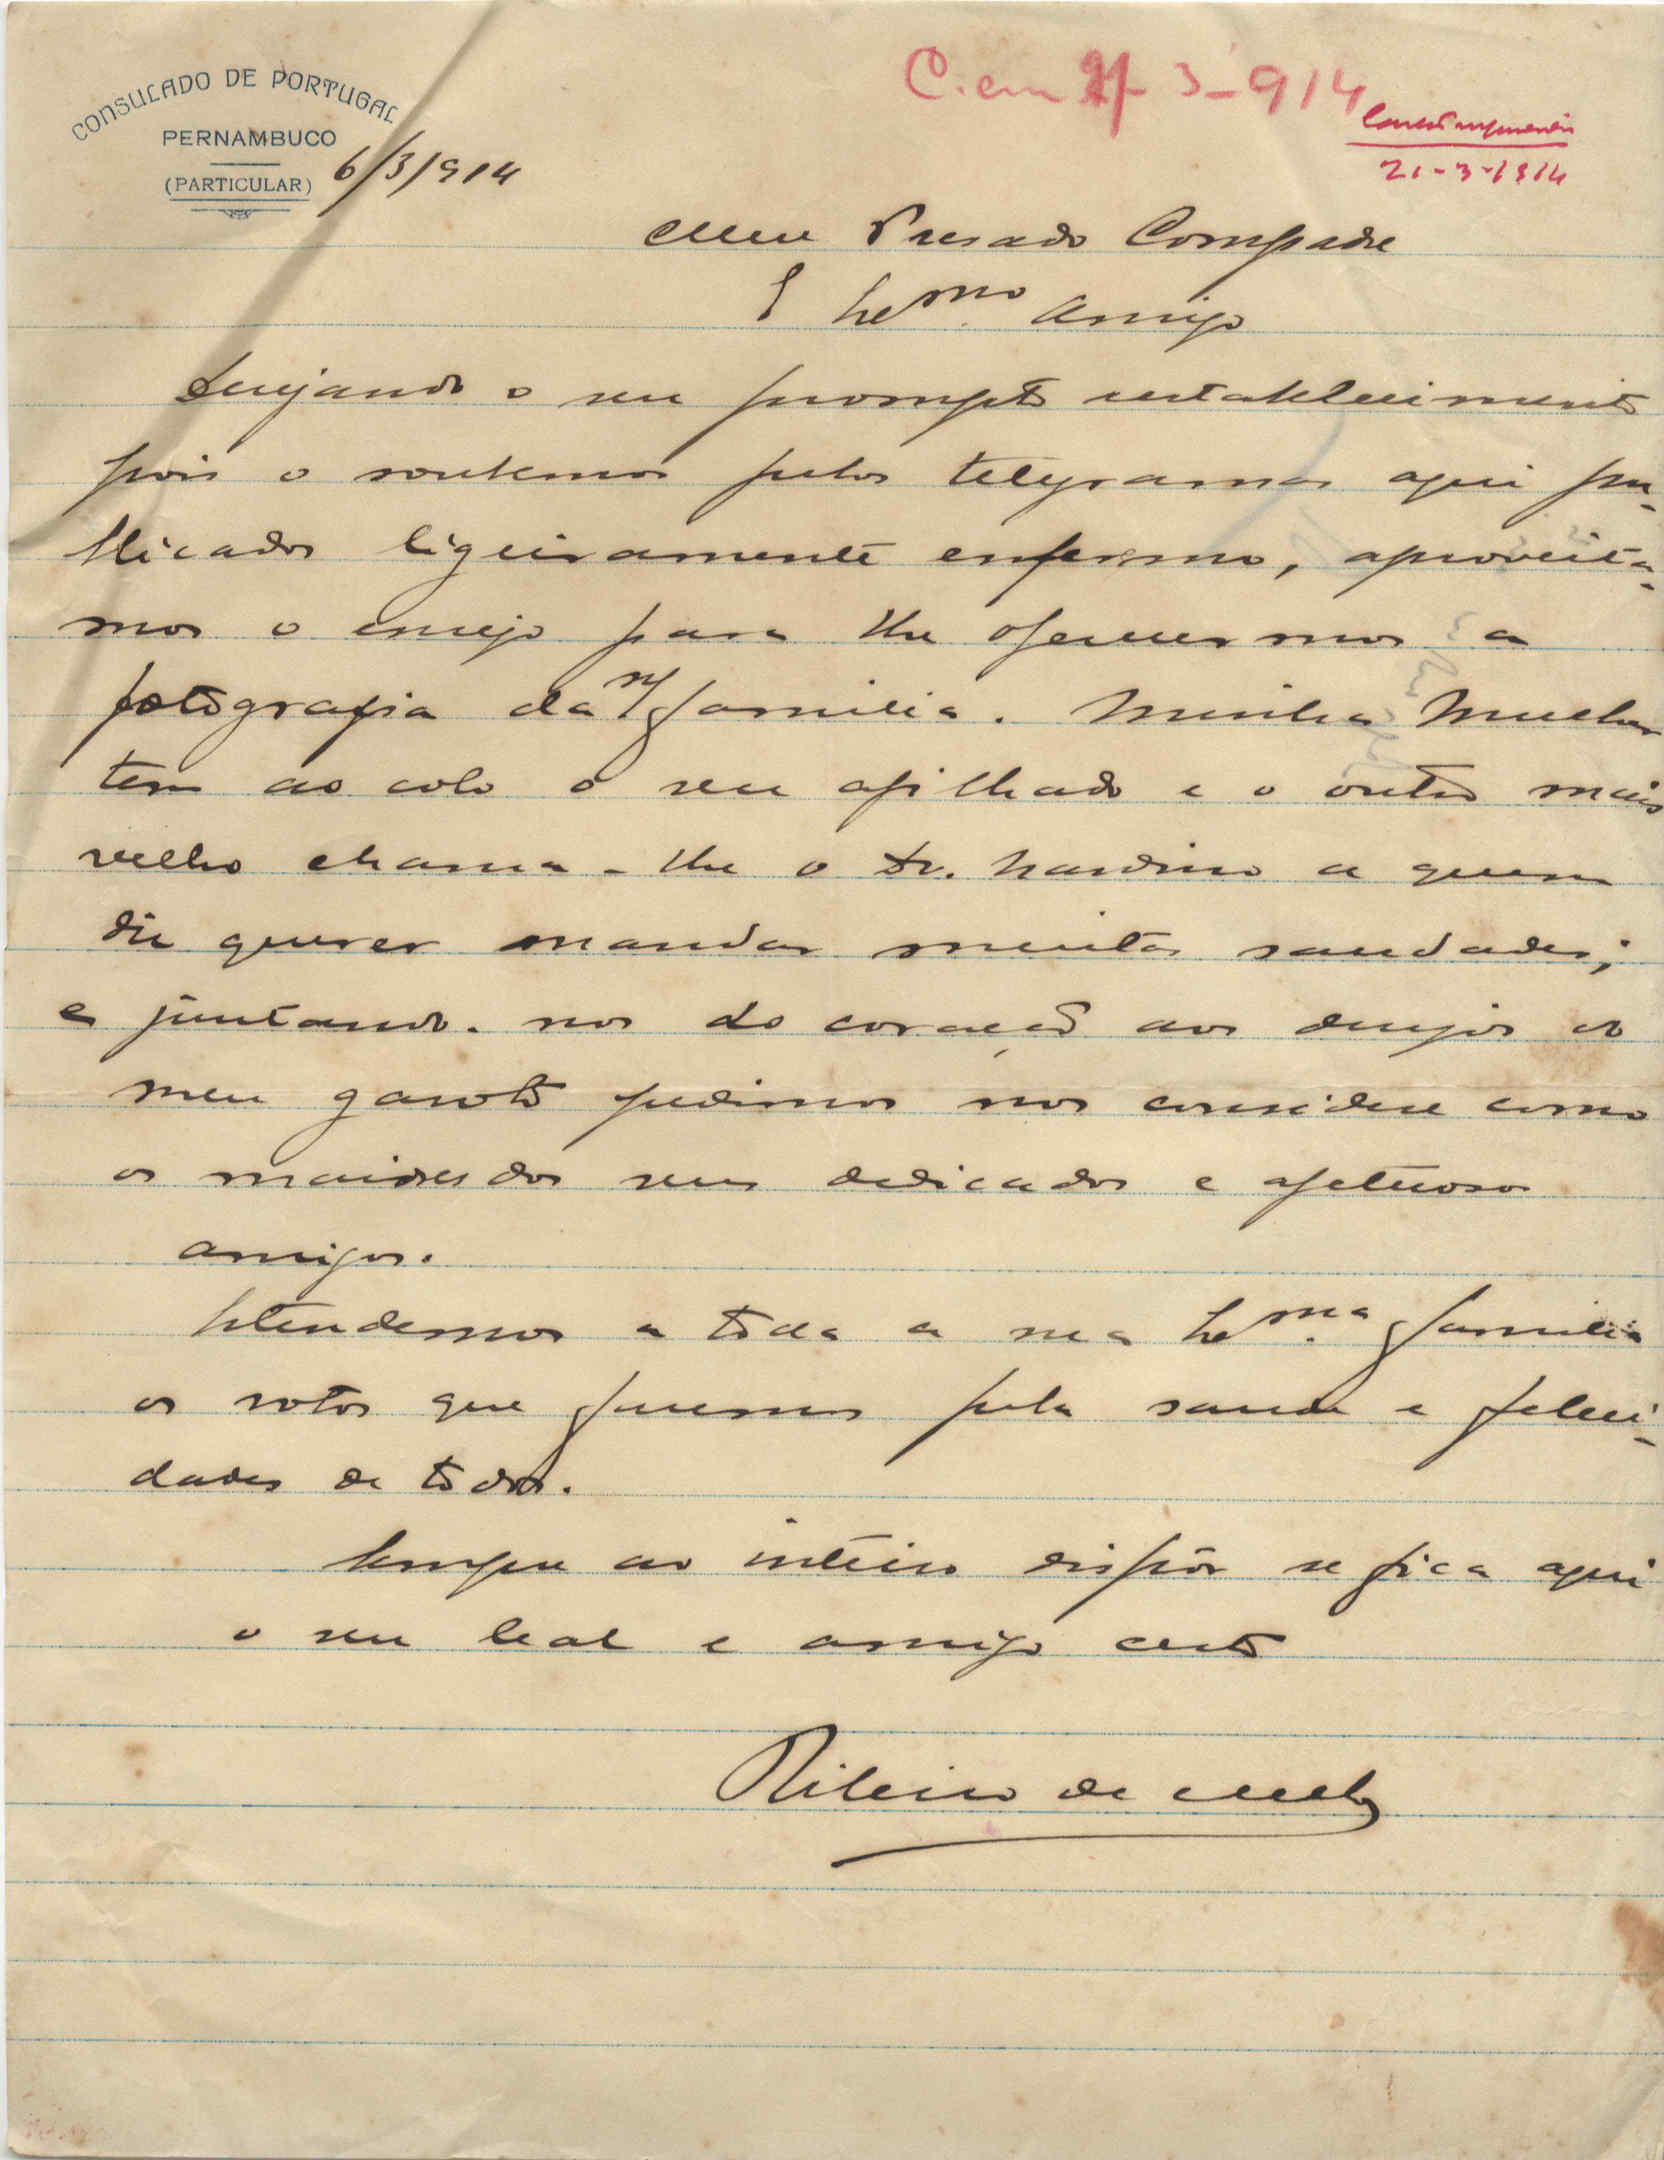 CONSULADO DE PORTUGAL
PERNAMBUCO
(PARTICULAR)
6/3/914
C. em 21-3-914
21-3-1914
Meu Presado Compadre
E Ex.mo Amigo
Desejando o seu prompto restabelecimento
pois o soubemos pelos telegramas aqui pu-
blicados ligeiramente enfermo, aproveita-
mos o ensejo para lhe oferecermos a
fotografia da n/ familia. Minha Mulher
tem ao colo o seu afilhado e o outro mais
velho chama-lhe o Dr. a quem
diz querer mandar muitas saudades;
e juntando-nos do coração aos desejos do
meu garoto pedimos nos considere como
os maiores dos seus dedicados e afetuosos
amigos.
Estendemos a toda a sua Ex.ma familia
os votos que fazemos pela saude e felici-
dades de todos.
Sempre ao inteiro dispôr se fica aqui
o seu leal e amigo certo
Ribeiro de Mello